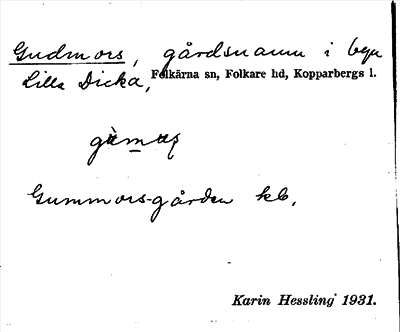 Gudmors, gårdsnamn i byn
Lilla Dicka, Folkärna sn, Folkare hd, Kopparbergs l.
Gummors-gården kb.
Karin Hessling 1931.